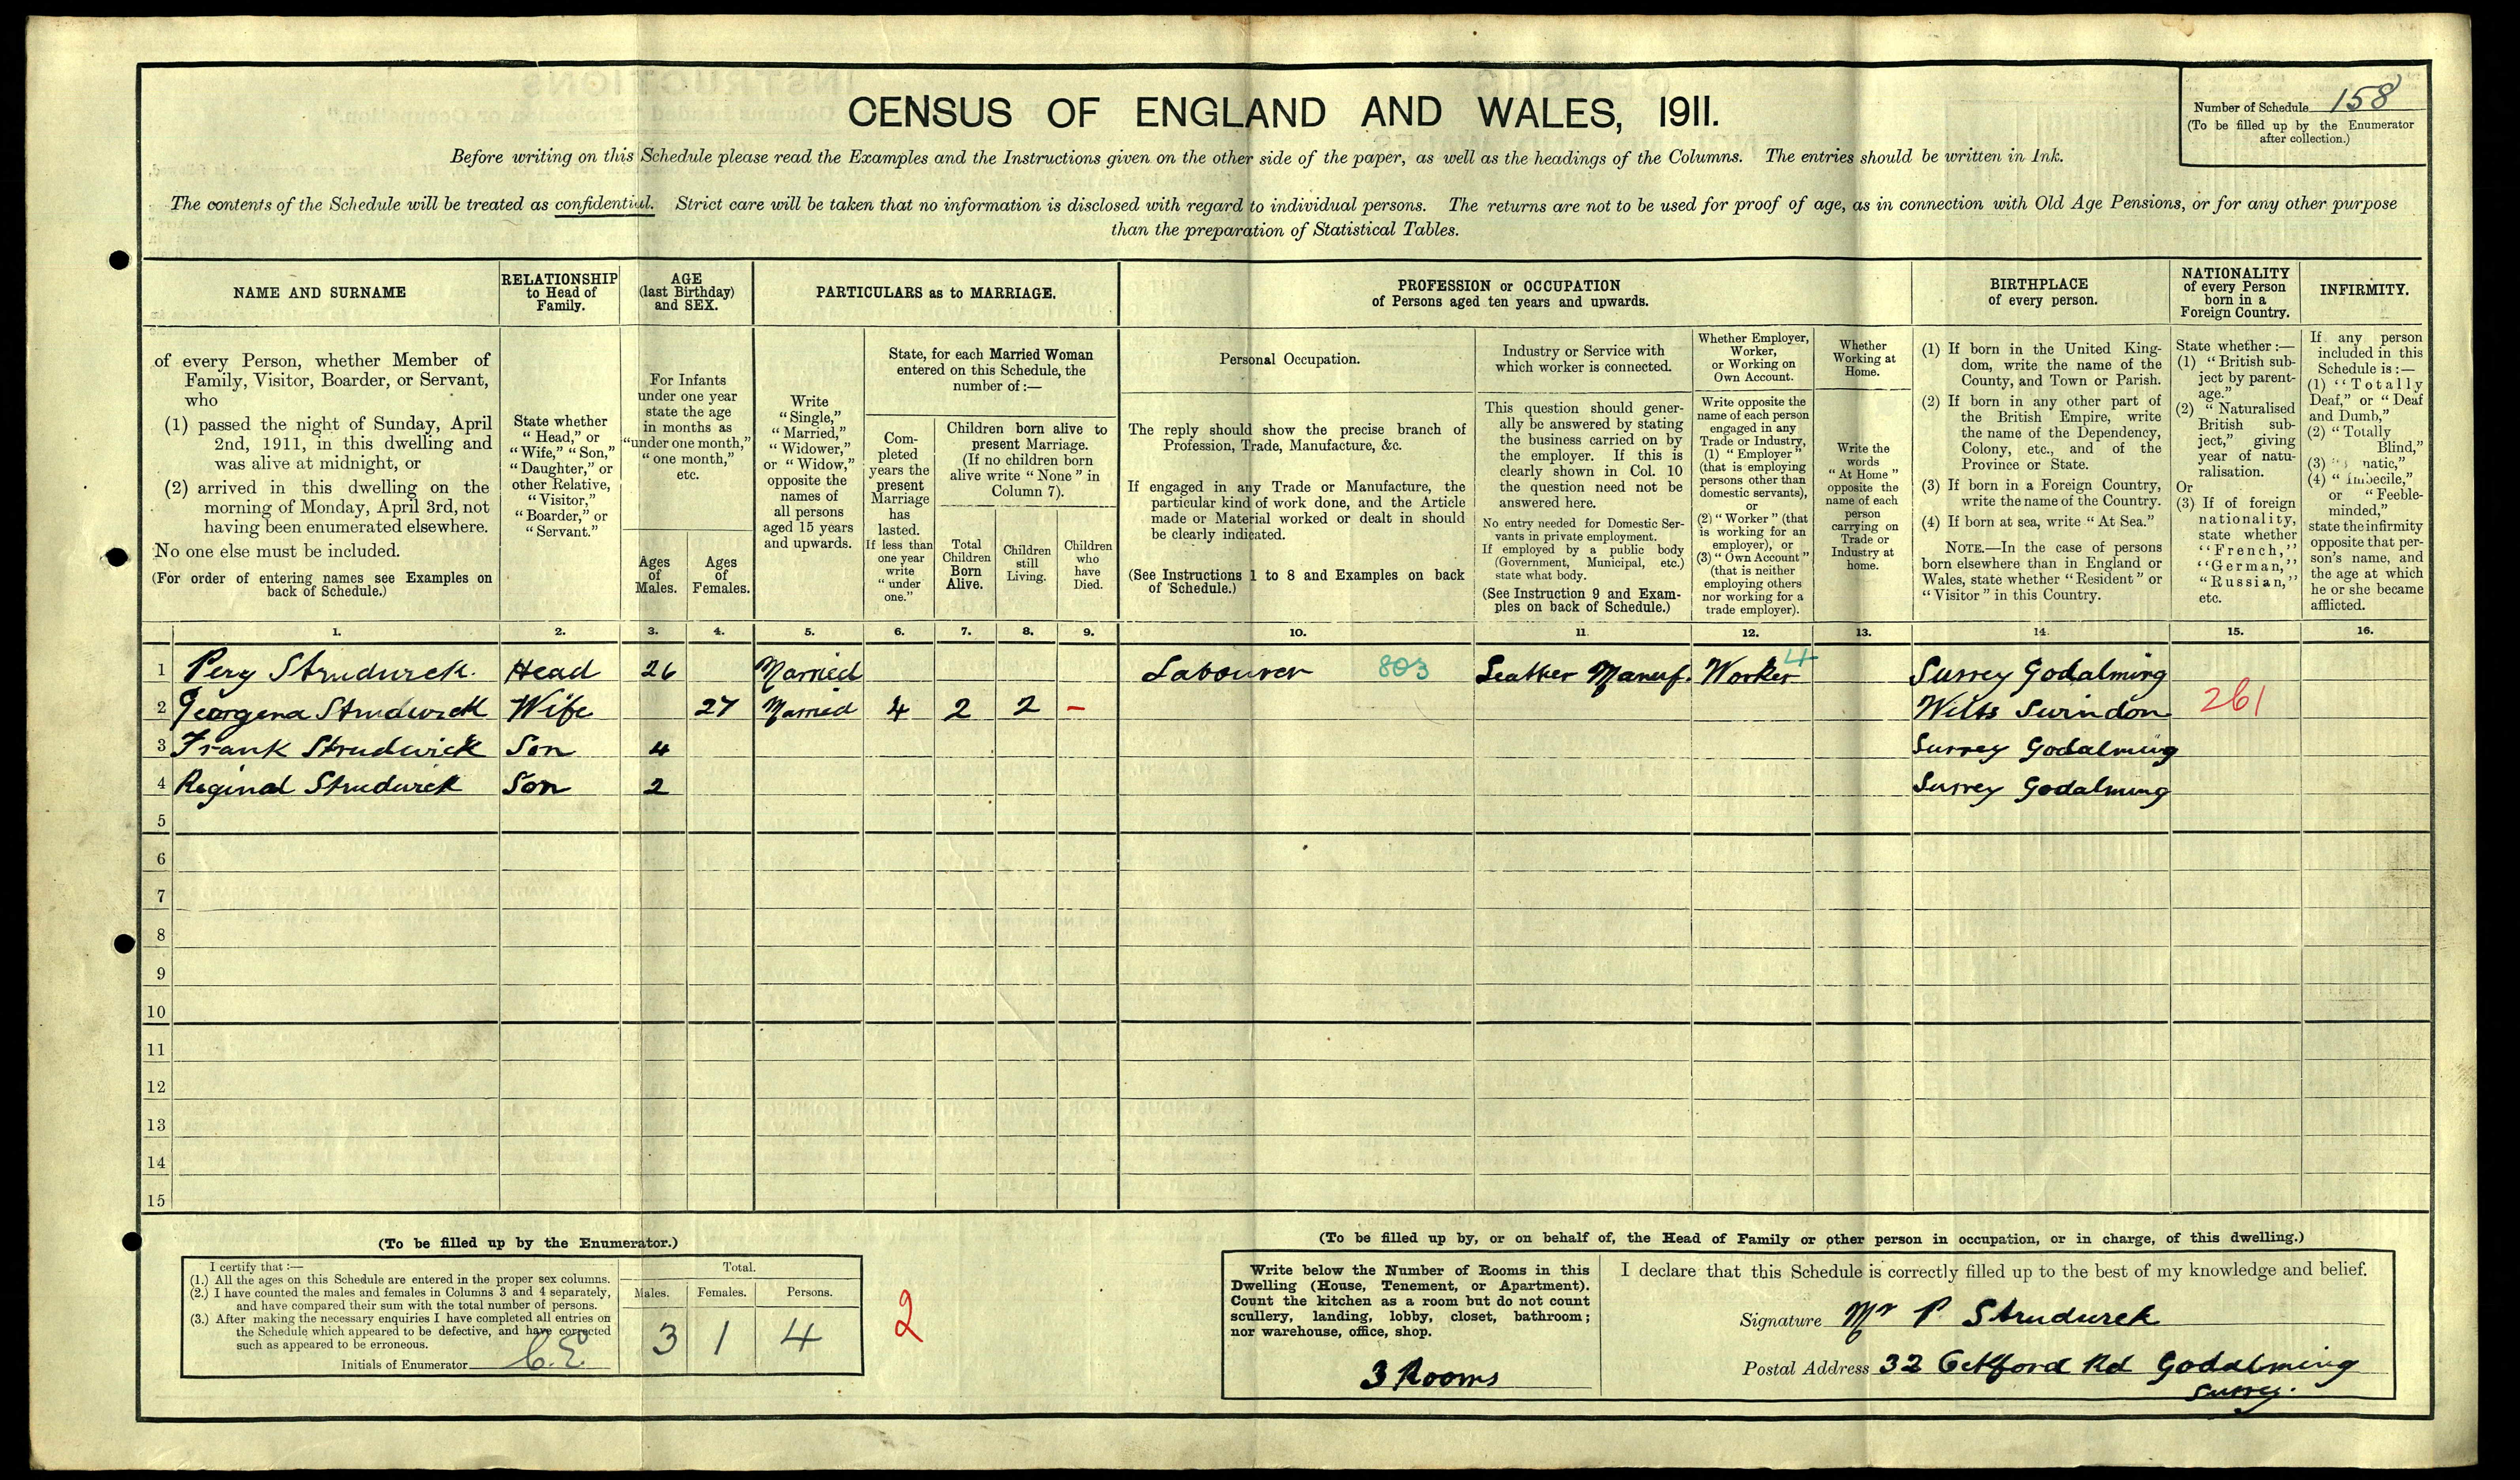 CENSUS OF ENGLAND AND WALES, 1911.
Number of Schedule 158
(To be filled up by the Enumerator
after collection.)
Before writing on this Schedule please read the Examples and the Instructions given on the other side of the paper, as well as the headings of the Columns. The entries should be written in Ink.
The contents of the Schedule will be treated as confidential. Strict care will be taken that no information is disclosed with regard to individual persons. The returns are not to be used for proof of age, as in connection with Old Age Pensions, or for any other purpose
than the preparation of Statistical Tables.
NAME AND SURNAME
RELATIONSHIP
to Head of
Family.
AGE
(last Birthday)
and SEX.
PARTICULARS as to MARRIAGE.
PROFESSION or OCCUPATION
of Persons aged ten years and upwards.
BIRTHPLACE
of every person.
NATIONALITY
of every Person
born in a
Foreign Country.
INFIRMITY.
of every Person, whether Member of
Family, Visitor, Boarder, or Servant,
who
(1) passed the night of Sunday, April
2nd, 1911, in this dwelling and
was alive at midnight, or
(2) arrived in this dwelling on the
morning of Monday, April 3rd, not
having been enumerated elsewhere.
No one else must be included.
(For order of entering names see Examples on
back of Schedule.)
State whether
"Head," or
"Wife," "Son,"
"Daughter," or
other Relative,
"Visitor,"
"Boarder," or
"Servant."
For Infants
under one year
state the age
in months as
"under one month,"
"one month,"
etc.
Ages
of
Males.
Ages
of
Females.
Write
"Single,"
"Married,"
"Widower,"
or "Widow,"
opposite the
names of
all persons
aged 15 years
and upwards.
State, for each Married Woman
entered on this Schedule, the
number of:—
Com-
pleted
years the
present
Marriage
has
lasted.
If less than
one year
write
"under
one."
Children born alive to
present Marriage.
(If no children born
alive write "None" in
Column 7).
Total
Children
Born
Alive.
Children
still
Living.
Children
who
have
Died.
Personal Occupation.
The reply should show the precise branch of
Profession, Trade, Manufacture, &c.
If engaged in any Trade or Manufacture, the
particular kind of work done, and the Article
made or Material worked or dealt in should
be clearly indicated.
(See Instructions 1 to 8 and Examples on back
of Schedule.)
Industry or Service with
which worker is connected.
This question should gener-
ally be answered by stating
the business carried on by
the employer. If this is
clearly shown in Col. 10
the question need not be
answered here.
No entry needed for Domestic Ser-
vants in private employment.
If employed by a public body
(Government, Municipal, etc.)
state what body.
(See Instruction 9 and Exam-
ples on back of Schedule.)
Whether Employer,
Worker,
or Working on
Own Account.
Write opposite the
name of each person
engaged in any
Trade or Industry,
(1) "Employer"
(that is employing
persons other than
domestic servants),
or
(2) "Worker" (that
is working for an
employer), or
(3) "Own Account"
(that is neither
employing others
nor working for a
trade employer).
Whether
Working at
Home.
Write the
words
"At Home"
opposite the
name of each
person
carrying on
Trade or
Industry at
home.
(1) If born in the United King-
dom, write the name of the
County, and Town or Parish.
(2) If born in any other part of
the British Empire, write
the name of the Dependency,
Colony, etc., and of the
Province or State.
(3) If born in a Foreign Country,
write the name of the Country.
(4) If born at sea, write "At Sea."
NOTE.—In the case of persons
born elsewhere than in England or
Wales, state whether "Resident" or
"Visitor" in this Country.
State whether:—
(1) "British sub-
ject by parent-
age."
(2) "Naturalised
British sub-
ject," giving
year of natu-
ralisation.
Or
(3) If of foreign
nationality,
state whether
"French,"
"German,"
"Russian,"
etc.
If any person
included in this
Schedule is:—
(1) "Totally
Deaf," or "Deaf
and Dumb,"
(2) "Totally
Blind,"
(3)
(4) "Imbecile,"
or "Feeble-
minded,"
state the infirmity
opposite that per-
son's name, and
the age at which
he or she became
afflicted.
1. 2. 3. 4. 5. 6. 7. 8. 9. 10. 11. 12. 13. 14. 15. 16.
1 Percy Strudwick. Head 26 Married Labourer 803 Leather Manuf. Worker 4 Surrey Godalming
2 Georgena Strudwick Wife 27 Married 4 2 2 – Wilts Swindon 261
3 Frank Strudwick Son 4 Surrey Godalming
4 Reginal Strudwick Son 2 Surrey Godalming
5
6
7
8
9
10
11
12
13
14
15
(To be filled up by the Enumerator.)
I certify that:—
(1.) All the ages on this Schedule are entered in the proper sex columns.
(2.) I have counted the males and females in Columns 3 and 4 separately,
and have compared their sum with the total number of persons.
(3.) After making the necessary enquiries I have completed all entries on
the Schedule which appeared to be defective, and have corrected
such as appeared to be erroneous.
Initials of Enumerator C.E.
Total.
Males. Females. Persons.
3 1 4
2
(To be filled up by, or on behalf of, the Head of Family or other person in occupation, or in charge, of this dwelling.)
Write below the Number of Rooms in this
Dwelling (House, Tenement, or Apartment).
Count the kitchen as a room but do not count
scullery, landing, lobby, closet, bathroom;
nor warehouse, office, shop.
3 Rooms
I declare that this Schedule is correctly filled up to the best of my knowledge and belief.
Signature Mr P. Strudwick
Postal Address 32 Ockford Rd Godalming
Surrey.